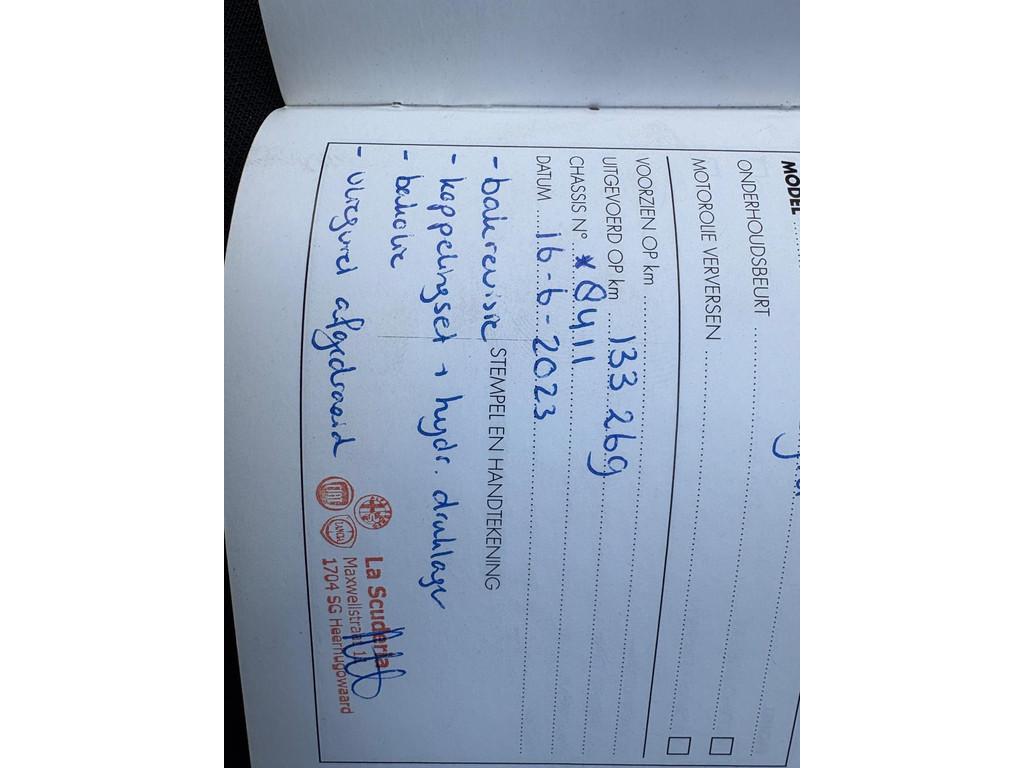 MODEL
ONDERHOUDSBEURT
MOTOROLIE VERVERSEN
VOORZIEN OP km
UITGEVOERD OP km 133 269
CHASSIS N° *0411
DATUM 16-6-2023
STEMPEL EN HANDTEKENING
- bakrevisie
- koppelingset + hydr. druklager
- bakolie
- vliegwiel afgedraaid
FIAT
LANCIA
La Scuderia
Maxwellstraat
1704 SG Heerhugowaard